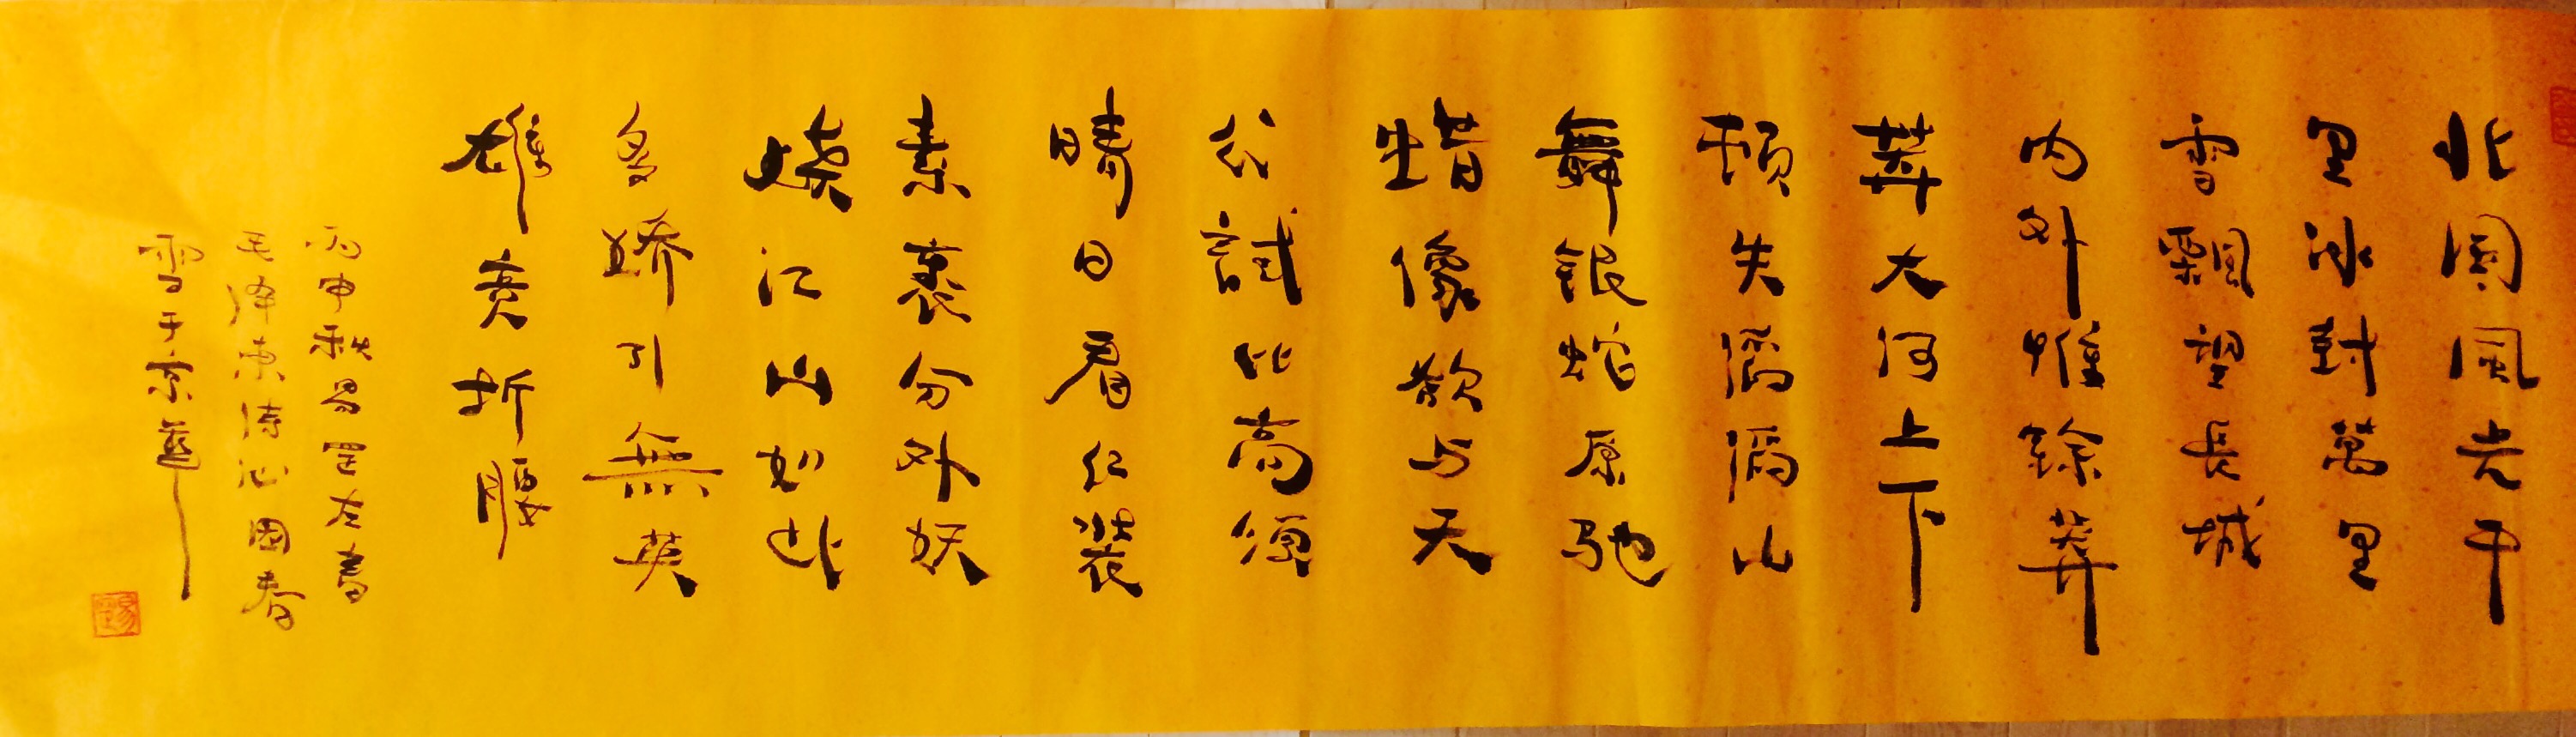 北國風光千
里冰封萬里
雪飄望長城
内外惟餘莽
莽大河上下
頓失滔滔山
舞銀蛇原驰
蜡像欲与天
公試比高須
晴日看红裝
素裹分外妖
娆江山如此
多娇引無英
雄竞折腰
丙申秋易罡左書
毛泽東诗沁園春
雪于京華